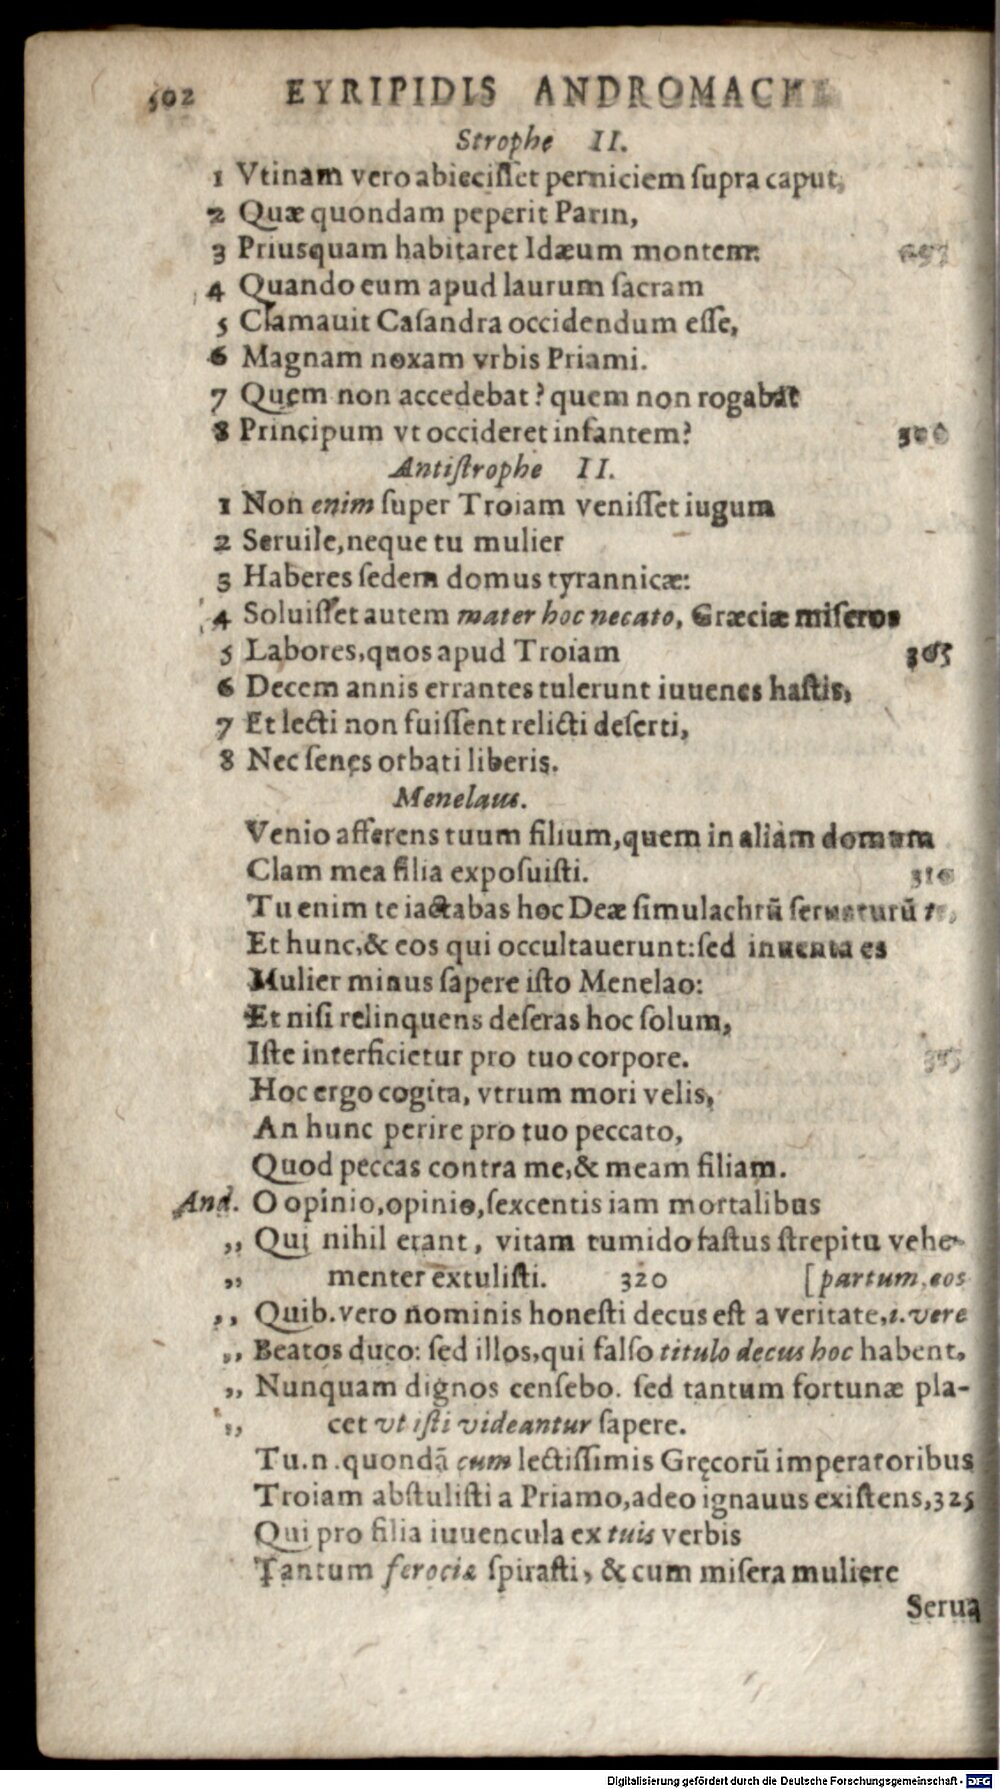 502 EYRIPIDIS ANDROMACHE
Strophe II.
1 Vtinam vero abieciſſet perniciem ſupra caput,
2 Quæ quondam peperit Parin,
3 Priusquam habitaret Idæum montem:
4 Quando eum apud laurum ſacram
5 Clamauit Caſandra occidendum eſſe,
6 Magnam noxam vrbis Priami.
7 Quem non accedebat? quem non rogabat
8 Principum vt occideret infantem? 300
Antiſtrophe II.
1 Non enim ſuper Troiam veniſſet iugum
2 Seruile, neque tu mulier
3 Haberes ſedem domus tyrannicæ:
4 Soluiſſet autem mater hoc necato, Græciæ miſeros
5 Labores, quos apud Troiam 305
6 Decem annis errantes tulerunt iuuenes haſtis,
7 Et lecti non fuiſſent relicti deſerti,
8 Nec ſenes orbati liberis.
Menelaus.
Venio afferens tuum filium, quem in aliam domum
Clam mea filia expoſuiſti. 310
Tu enim te iactabas hoc Deæ ſimulachrū ſeruaturū te,
Et hunc, & eos qui occultauerunt: ſed inuenta es
Mulier minus ſapere iſto Menelao:
Et niſi relinquens deſeras hoc ſolum,
Iſte interficietur pro tuo corpore. 315
Hoc ergo cogita, vtrum mori velis,
An hunc perire pro tuo peccato,
Quod peccas contra me, & meam filiam.
And. O opinio, opinio, ſexcentis iam mortalibus
„ Qui nihil erant, vitam tumido faſtus ſtrepitu vehe-
„ menter extuliſti. 320 [partum, eos
„ Quib. vero nominis honeſti decus eſt a veritate, i. vere
„ Beatos duco: ſed illos, qui falſo titulo decus hoc habent,
„ Nunquam dignos cenſebo. ſed tantum fortunæ pla-
„ cet vt iſti videantur ſapere.
Tu .n. quondā cum lectiſſimis Gręcorū imperatoribus
Troiam abſtuliſti a Priamo, adeo ignauus exiſtens, 325
Qui pro filia iuuencula ex tuis verbis
Tantum ferociæ ſpiraſti, & cum miſera muliere
Serua
Digitalisierung gefördert durch die Deutsche Forschungsgemeinschaft - DFG